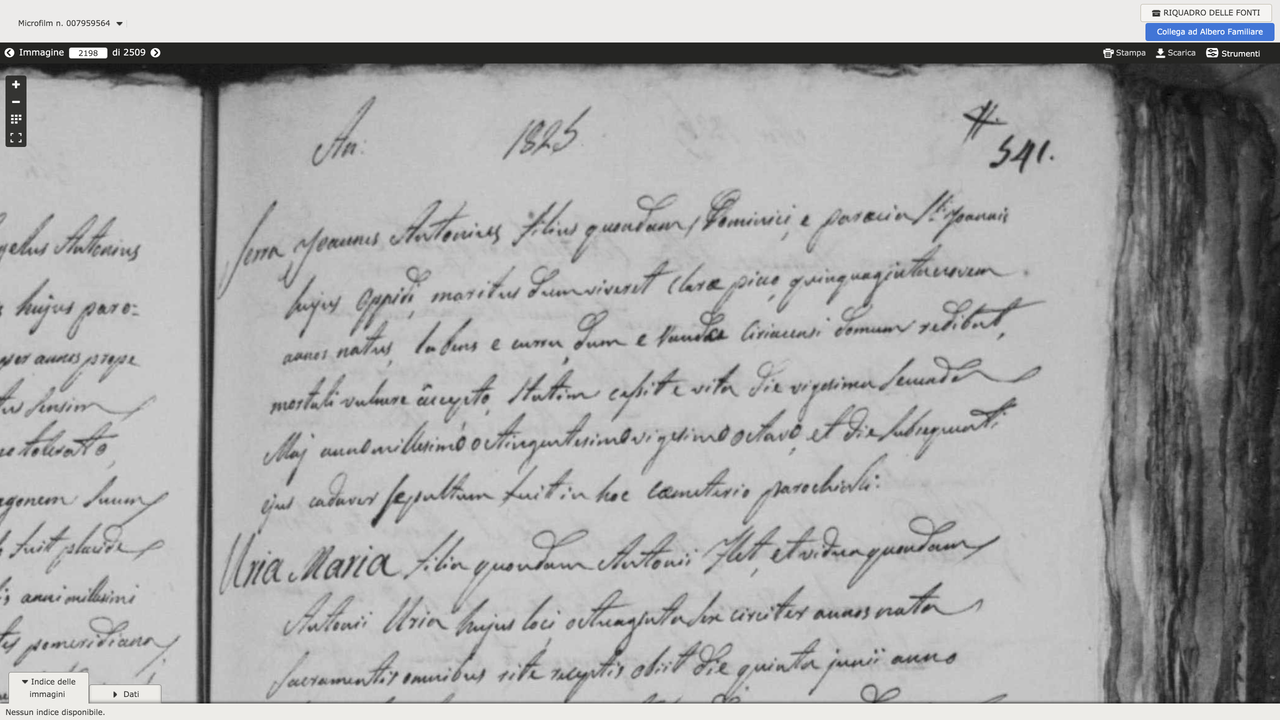 Microfilm n. 007959564
RIQUADRO DELLE FONTI
Collega ad Albero Familiare
Immagine 2198 di 2509
Stampa
Scarica
Strumenti
gelus Antonius
hujus paro=
per annos prope
sensim
tolerato,
agonem suum
fuit placide
is anni millesimi
pomeridiana
An: 1825
541.
Serra Joannes Antonius filius quondam Dominici, e paracia Sti Joannis
hujus oppidi, maritus dum viveret Claræ pico, quinquagintanovem
annos natus, labens e curru, dum e Ciriacensi domum redibat,
mortali vulnere accepto, statim cessit e vita die vigesima secunda
Maj anno millesimo octingentesimo vigesimo octavo, et die subsequenti
ejus cadaver sepultum fuit in hoc cæmeterio parochiali:
Uria Maria filia quondam Antonii Flet, et vidua quondam
Antonii Uria hujus loci, octuaginta sex circiter annos nata
Sacramentis omnibus rite receptis obiit die quinta junii anno
Indice delle immagini
Dati
Nessun indice disponibile.